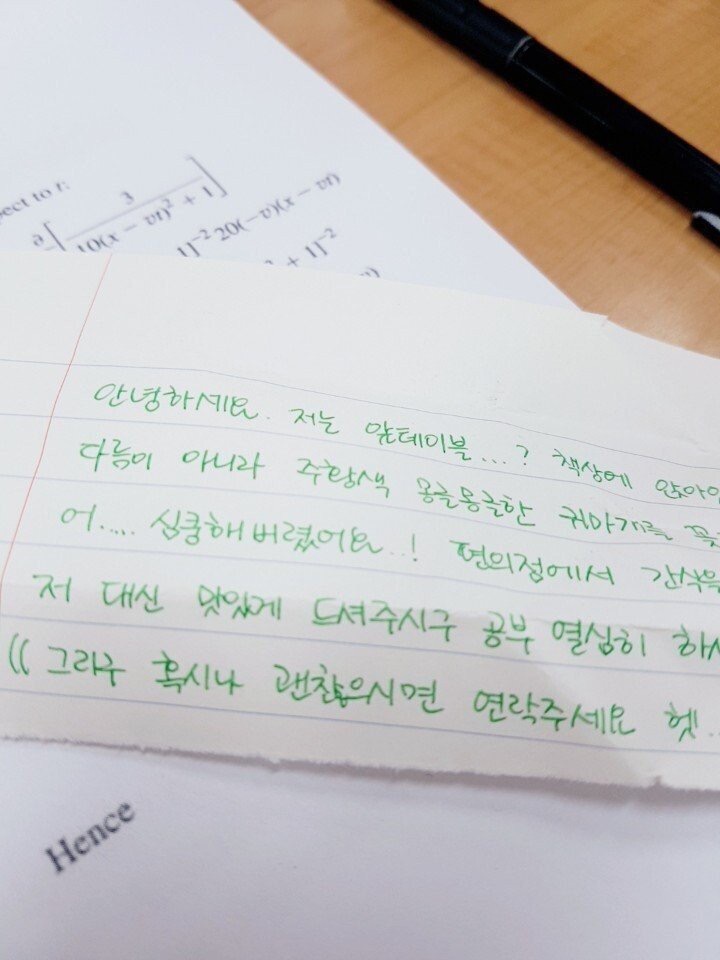 pect to t:
∂[3 / 10(x − vt)² + 1]
1]⁻² 20(−v)(x − vt)
+ 1]⁻²
안녕하세요. 저는 앞테이블...? 책상에 앉아
다름이 아니라 주황색 몽글몽글한 귀마개를
어..... 심쿵해버렸어요..! 편의점에서 간식을
저 대신 맛있게 드셔주시구 공부 열심히 하
(( 그라구 혹시나 괜찮으시면 연락주세요 헷..
Hence